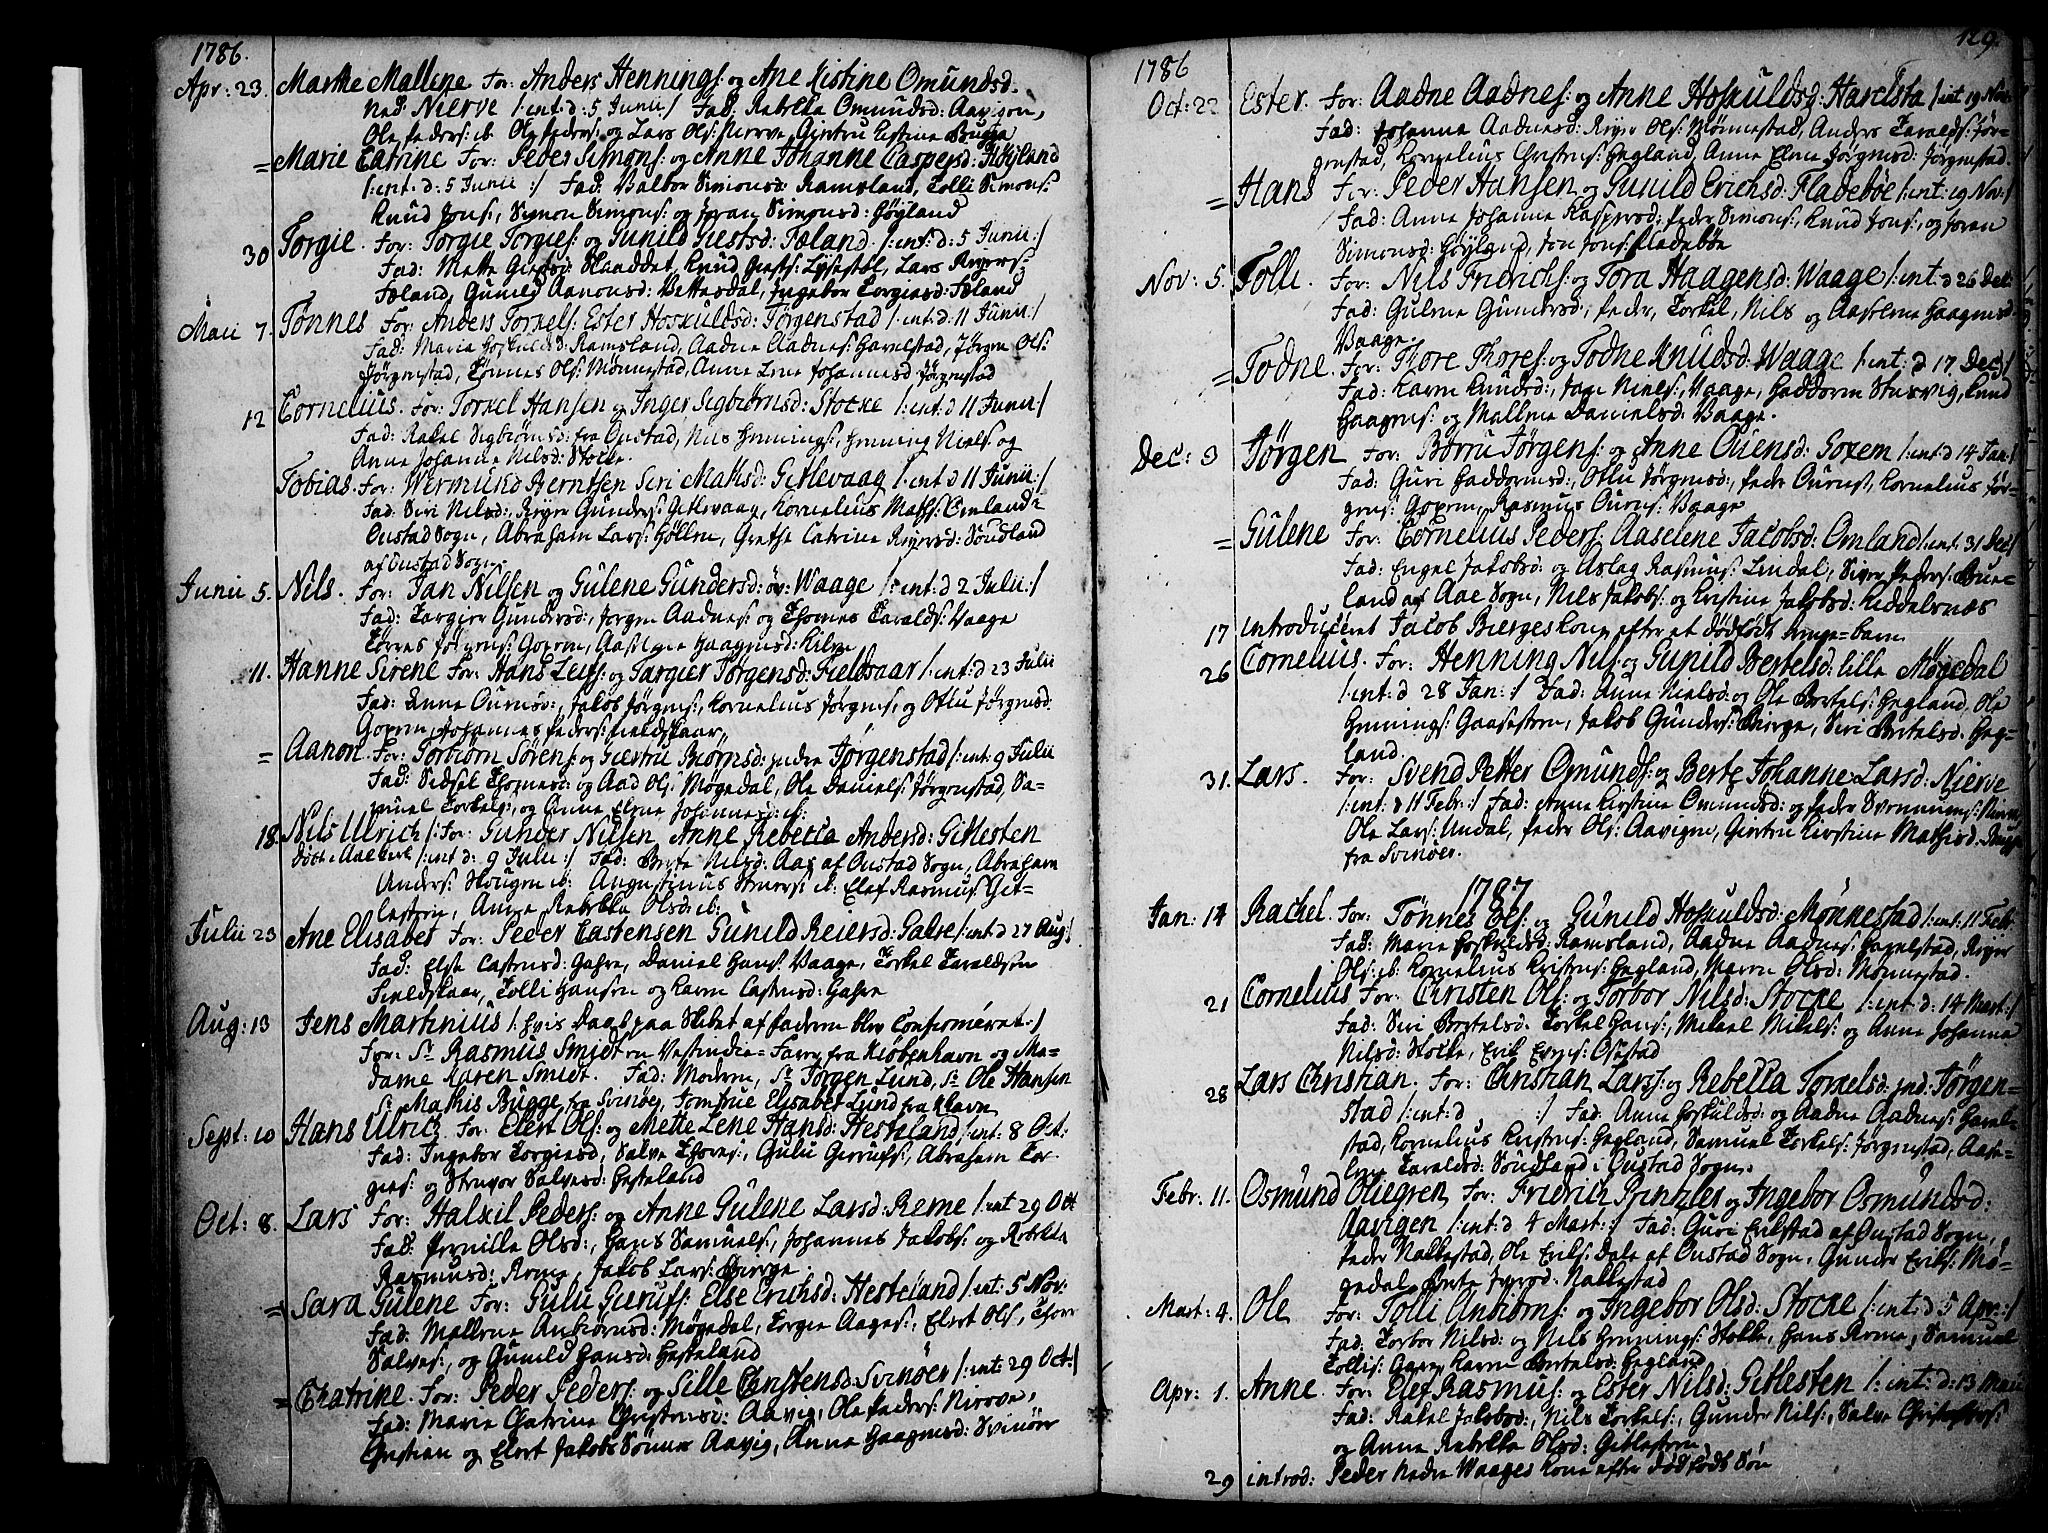 1786.
Apr: 23. Marthe Mallene For: Anders Hennings: og Ane Kistine Omundsd:
Ned: Nierve /: int: d: 5 Junii :/ Fad: Rebekka Omundsd: Aavigen,
Ole Peders: ib. Ole Peders: og Lars Ols: Nierve, Giertru Kistine Bugge
= Marie Catrine For: Peder Simons: og Anne Johanne Caspersd: Høyland
/: int: d: 5 Junii :/ Fad: Valbor Simonsd: Ramsland, Tolli Simons:
Knud Jons:, Simon Simons: og Joran Simonsd: Høyland
30 Torgie. For: Torgie Torgies: og Gunild Giestsd: Foland /: int: d: 5 Junii :/
Fad: Mette Giestsd: Knud Giests: Lysestøl, Lars Reyers:
Foland, Gunild Aanonsd: Vettesdal, Ingebor Torgiesd: Foland
Maii 7. Tønnes For: Anders Torkels: Ester Hoskuldsd: Jørgenstad /: int: d: 11 Junii :/
Fad: Maria Hoskuldsd: Ramsland, Aadne Aadnes: Harelstad, Jørgen Ols:
Jørgenstad, Tønnes Ols: Mønnestad, Anne Lene Johannesd: Jørgenstad
12 Cornelius. For: Torkel Hansen og Inger Sigbiørnsd: Stocke /: int: d 11 Junii :/
Fad: Rakel Sigbiørnsd: fra Oustad, Nils Hennings:, Henning Niels: og
Anne Johanne Nilsd: Stokke.
Tobias. For: Wermund Berntsen Siri Mathsd: Gitlevaag /: int: d 11 Junii :/
Fad: Siri Nilsd: Reyer Gunders: Gitlevaag, Kornelius Maths: Omland i
Oustad Sogn, Abraham Lars: Høllen, Grethe Catrine Reyersd: Søndland
af Oustad Sogn
Junii 5. Nils. For: Jan Nilsen og Gulene Gundersd: øv: Waage /: int: d 2 Julii :/
Fad: Targier Gundersd:, Jørgen Aadnes: og Thomes Taralds: Vaage
Tørres Jørgens: Goxem, Aaselene Haagensd: Kilen
11. Hanne Sirene For: Hans Leifs: og Targier Jørgensd: Fieldskaar /: int: d 23 Julii
Fad: Anne Ouensd:, Jakob Jørgens:, Kornelius Jørgens:, og Otlu Jørgensd:
Goxem, Johannes Peders: Fieldskaar,,
= Aanon. For: Torbiørn Sørens: og Giertru Biørnsd: indre Jørgenstad /: int: 9 Julii
Fad: Sidsel Thomesd: og Aad Ols: Møgedal, Ole Daniels: Jørgenstad, Sa-
muel Torkels:, og Anne Elene Johannesd: ib:
18. Nils Ulrich /: For: Gunder Nilsen Anne Rebecca Andersd: Gitlesten
/: int: d: 9 Julii :/ Fad: Berte Nilsd: Aas af Oustad Sogn, Abraham
Anders: Skougen ib: Augustinus ib: Elef Rasmus: Git-
lesten, Anne Rebekka Olsd: ib:
Julii 23 Ane Elisabet For: Peder Castensen Gunild Reiersd: Gahre /: int: d 27 Aug:/
Fad: Else Castensd: Gahre, Daniel Hans: Vaage, Torkel Taraldsen
Fieldskaar, Tolli Hansen og Karen Castensd: Gahre
Aug: 13 Jens Martinius /: hvis Daab paa Skibet af Faderen blev Confirmeret :/
For: Sr. Rasmus Smidt en Vestindie-Farer fra Kiøbenhavn og Ma-
dame Karen Smidt. Fad: Moderen, Sr. Jørgen Lund, Sr. Ole Hansen
Sr. Mathis Bugge fra Svinøer, Jomfrue Elisabet Lund fra Klaven
Sept: 10 Hans Ulrich For: Elert Ols: og Mette Lene Hansd: Hesteland /: int: 8 Oct:
Fad: Ingebor Torgiesd, Salve Thores:, Gulu Gierufs:, Abraham Tor-
gies: og Strever Salvesd: Hesteland
Oct: 8. Lars For: Halkil Peders: og Anne Gulene Larsd: Reme /: int 29 Oct
Fad: Pernille Olsd:, Hans Samuels:, Johannes Jakobs: og Rebekka
Rasmusd: Reme, Jakob Lars: Bierge
= Sara Gulene For: Gulu Gierufs: Else Erichsd: Hesteland /: int: 5 Nov:
Fad: Mallene Anbiørnsd: Møgedal, Torgie Aages:, Elert Ols:, Thore
Salves:, og Gunild Hansd: Hesteland
= Chatrine. For: Peder Peders: og Sille Christensd: Svinøer /: int: 29 Oct:/
Fad: Marie Chatrine Christensd: Aavig, Ole Peders: Nierve,
Christian og Elert Jakobs Sønner Aavig, Anne Haagensd: Svinøer
129.
1786
Oct: 22 Ester. For: Aadne Aadnes: og Anne Hoskuldsd: Harelsta /: int 19 Nov:
Fad: Johanne Aadnesd: Reyer Ols: Mønnestad, Anders Taralds: Jør-
genstad, Kornelius Christens: Hegland, Anne Elene Jørgensd: Jørgenstad.
= Hans For: Peder Hansen og Gunild Erichsd: Fladebøe /: int: 19 Nov:/
Fad: Anne Johanne Kaspersd: Peder Simons:, Knud Jons:, og Joran
Simonsd: Høyland, Jon Jons: Fladebøe
Nov: 5. Tolli. For: Nils Fridrichs: og Tora Haagensd: Waage /: int: d 26 Dec:
Fad: Gulene Gundersd:, Peder, Torkel, Nils og Aaselene Haagensd:
Vaage.
= Todne. For: Thore Thores: og Todne Knudsd: Waage /: int: d 17 Dec:/
Fad: Karen Knudsd:, Jan Niels: Vaage, Haddoren Stusvig, Knud
Haagens: og Mallene Danielsd: Vaage.
Dec: 3 Jørgen For: Børru Jørgens: og Anne Ouensd: Goxem /: int: d 14 Jan:/
Fad: Guri Haddorensd:, Otlu Jørgensd:, Peder Ouens:, Kornelius Jør-
gens: Goxem, Rasmus Ouens: Vaage
= Gulene For: Cornelius Peders: Aaselene Jacobsd: Omland /: int: 31 Dec:/
Fad: Engel Jakobsd: og Aslag Rasmus: Lindal, Siver Peders: Bue-
land af Aae Sogn, Nils Jakobs: og Kristine Jakobsd: Reddalsnæs
17 introduceret Jacob Bierges kone efter et dødfødt Drenge-barn
26 Cornelius. For: Henning Nils: og Gunild Bertelsd: lille Møgedal
/: int: d 28 Jan: :/ Fad: Anne Nielsd: og Ole Bertels: Hegland, Ole
Hennings: Gaasesteen, Jakob Gunders: Bierge, Siri Bertelsd: Heg-
land.
31. Lars. For: Svend Petter Omunds: og Berte Johanne Larsd: Nierve
/: int: d 11 Febr: :/ Fad: Anne Kirstine Omundsd: og Peder Svennings: Nierve
Ole Lars: Undal, Peder Ols: Aavigen, Giertru Kirstine Mathisd: Bugge
fra Svinøer.
1787
Jan: 14 Rachel. For: Tønnes Ols: og Gunild Hoskuldsd: Mønnestad /: int: 11 Febr:
Fad: Marie Hoskuldsd: Ramsland, Aadne Aadnes: Harelstad, Reyer
Ols: ib: Kornelius Kristens: Hegland, Maren Olsd: Mønnestad.
21 Cornelius For: Christen Ols: og Torbor Nilsd: Stocke /: int: d: 14 Mart :/
Fad: Siri Bertelsd: Torkel Hans:, Mikkel Nikels: og Anne Johanne
Nilsd: Stokke, Erik Ereas: Osestad
28 Lars Christian. For: Christian Larss: og Rebecca Torkelsd: ind: Jørgen-
stad /: int: d :/ Fad: Anne Hoskuldsd: og Aadne Aadnes: Harel-
stad, Kornelius Kristens: Hegland, Samuel Torkels: Jørgenstad, Aase-
lene Taraldsd: Søndland i Oustad Sogn.
Febr: 11. Osmund Oliegren For: Fridrich Printzler og Ingebor Osmundsd:
Aavigen /: int: d 4 Mart: :/ Fad: Guri Erikstad af Oustad Sogn,
Peder Nallestad, Ole Eriks: Dale af Oustad Sogn, Gunder Eriks: Mø-
gedal, Berte Iversd: Nallestad
Mart: 4. Ole For: Tolli Anbiørns: og Ingebor Olsd: Stocke /: int: d 5 Apr: :/
Fad: Torbor Nilsd: og Nils Hennings: Stokke, Hans Reme, Samuel
Tollis: Aaen, Karen Bertelsd: Hegland
Apr: 1. Anne. For: Elef Rasmus: og Ester Nilsd: Gitlesten /: int: d: 13 Maii
Fad: Rakel Jakobsd:, Nils Torkels:, Gunder Nils:, Salve Christophers:
og Anne Rebekka Olsd: Gitlesten
29 introd: Peder Nedre Waages kone efter dødfødt Søn